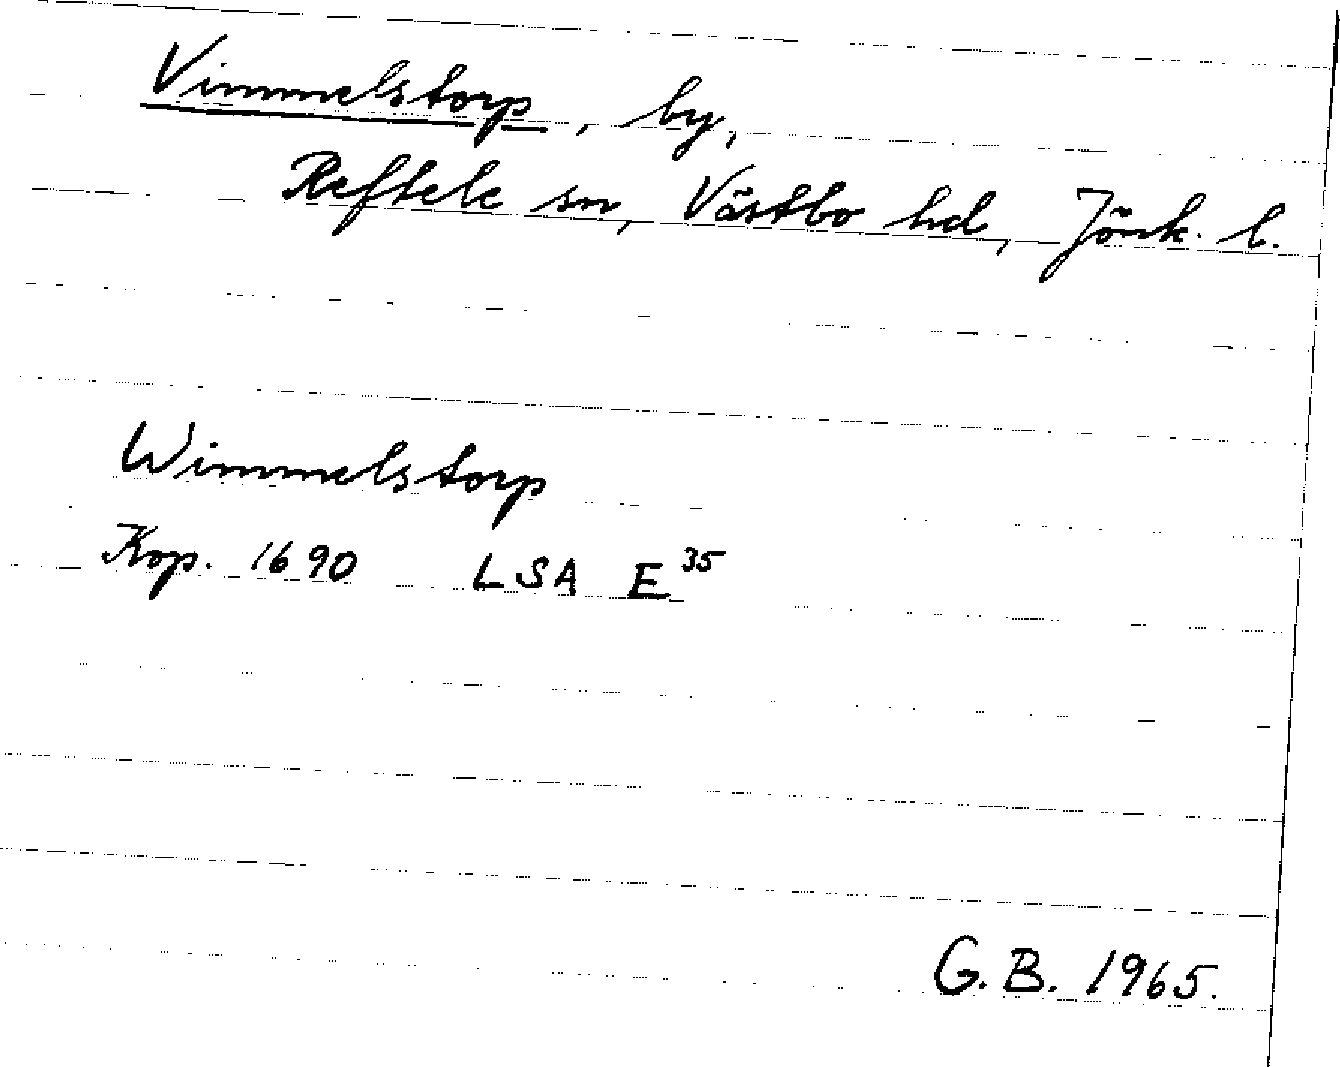 Vimmelstorp, by,
Reftele sn, Västbo hd, Jönk. l.
Wimmelstorp
Kop. 1690 LSA E 35
G. B. 1965.